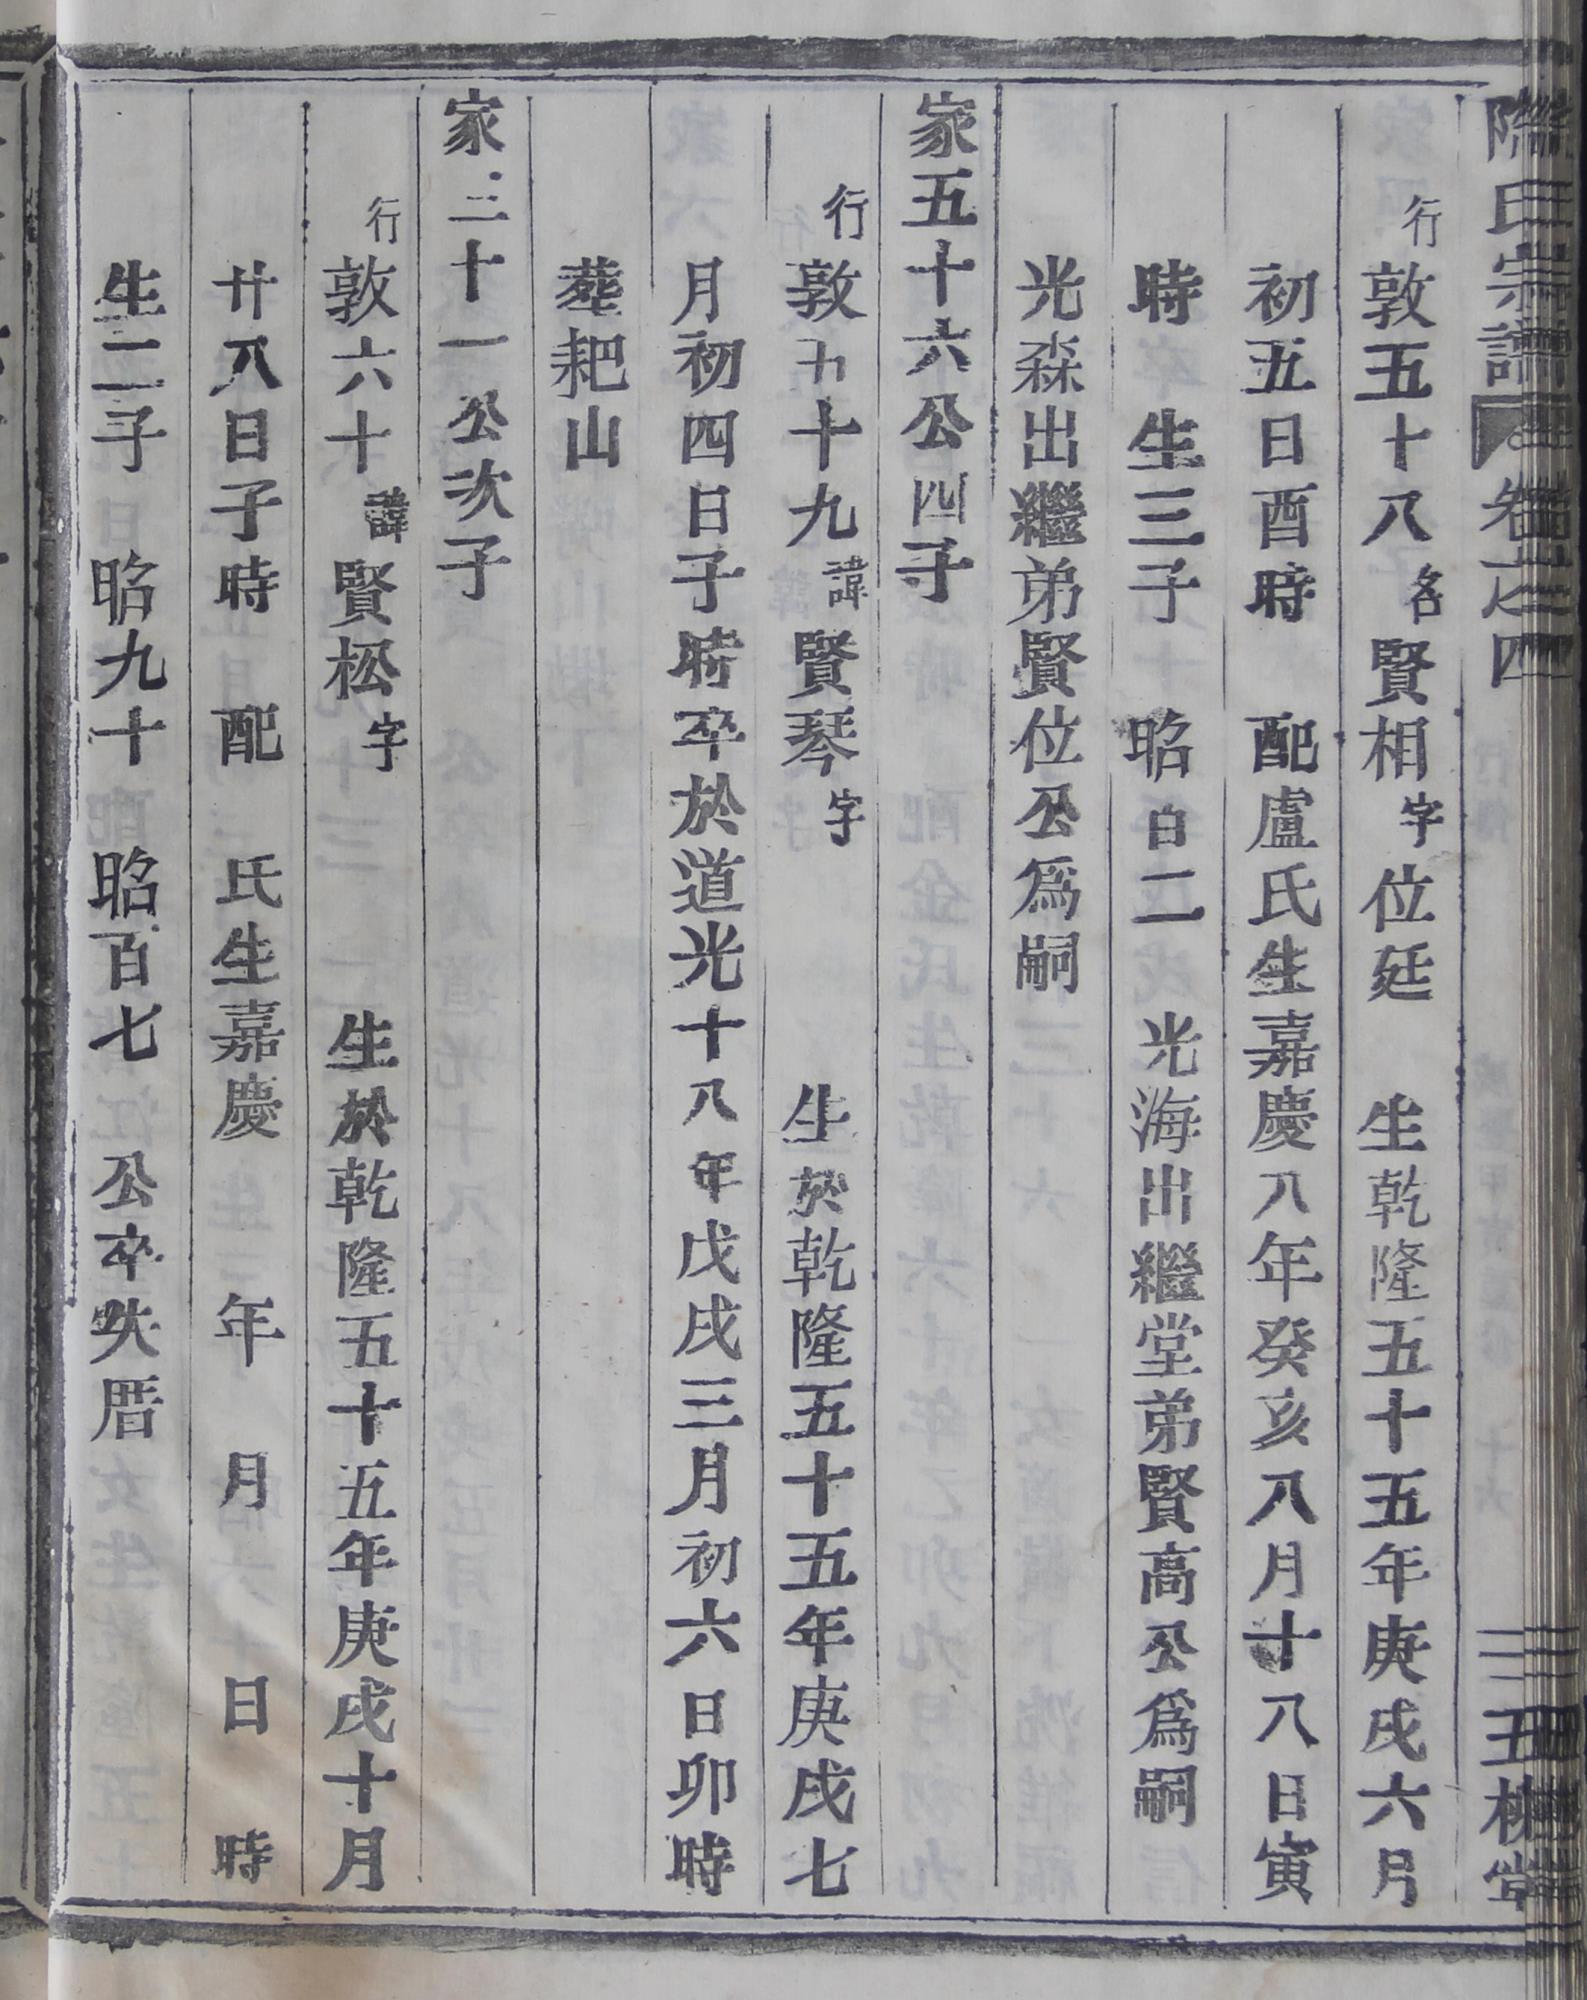 氏宗譜 卷之四 三 五桃堂
行敦五十八名賢相字位廷 生乾隆五十五年庚戌六月
初五日酉時 配盧氏生嘉慶八年癸亥八月十八日寅
時 生三子 昭白二 光海出繼堂弟賢高公爲嗣
光森出繼弟賢位公爲嗣
家五十六公四子
行敦五十九諱賢琴字 生於乾隆五十五年庚戌七
月初四日子時卒於道光十八年戊戌三月初六日卯時
葬耙山
家三十一公次子
行敦六十諱賢松字 生於乾隆五十五年庚戌十月
廿八日子時 配 氏生嘉慶 年 月 日 時
生二子 昭九十 昭百七 公卒失厝